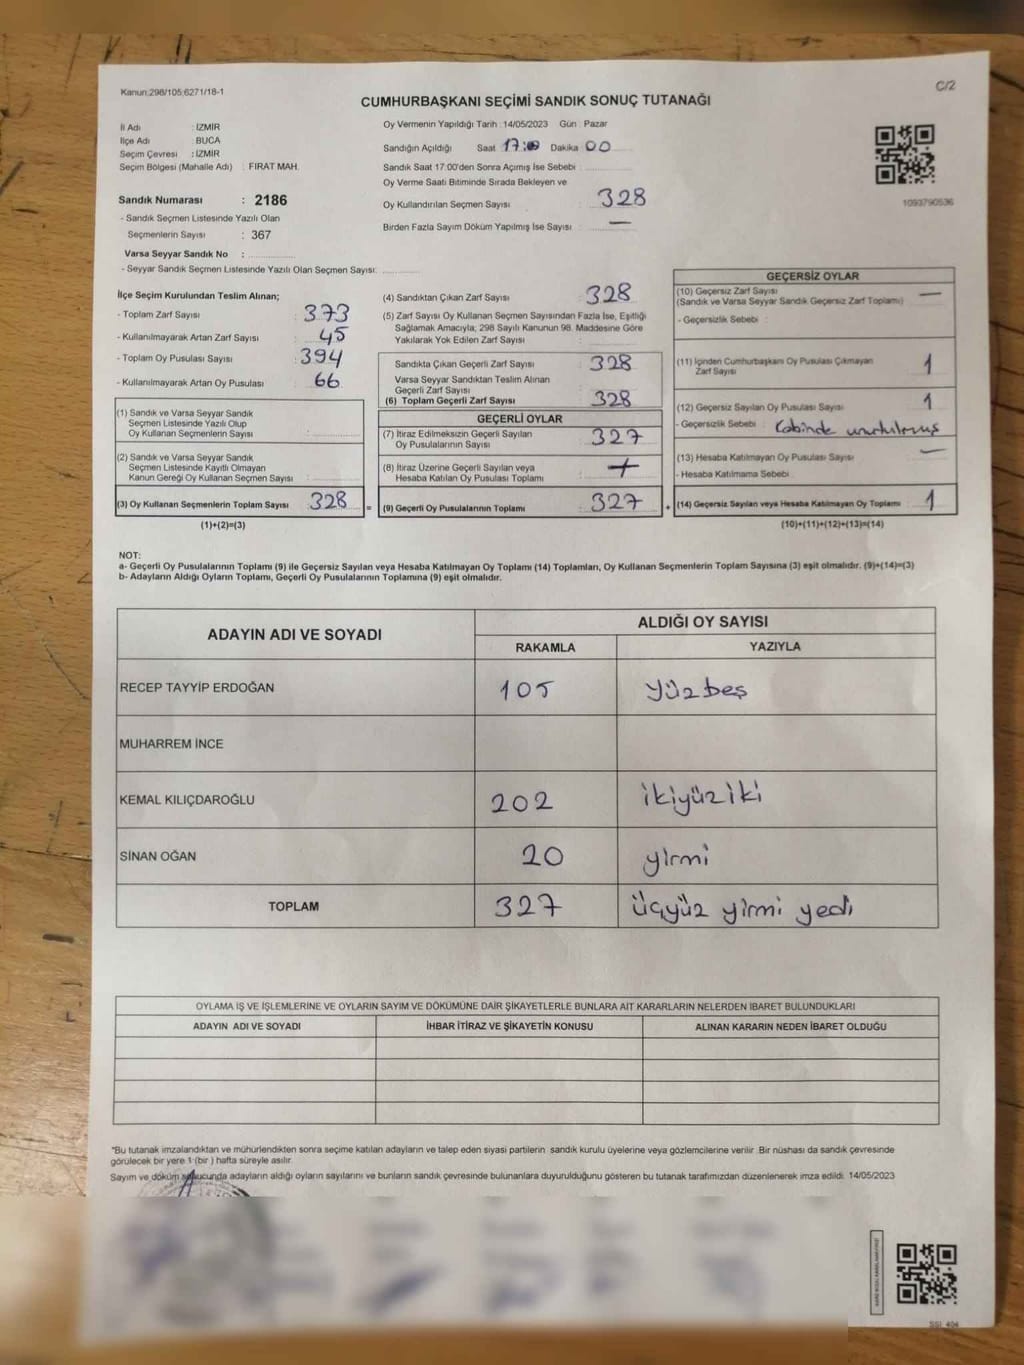 Kanun:298/105,6271/18-1
C/2
CUMHURBAŞKANI SEÇİMİ SANDIK SONUÇ TUTANAĞI
İl Adı : İZMİR
İlçe Adı : BUCA
Seçim Çevresi : İZMİR
Seçim Bölgesi (Mahalle Adı) : FIRAT MAH.
Sandık Numarası : 2186
- Sandık Seçmen Listesinde Yazılı Olan
Seçmenlerin Sayısı : 367
Varsa Seyyar Sandık No :
- Seyyar Sandık Seçmen Listesinde Yazılı Olan Seçmen Sayısı:
Oy Vermenin Yapıldığı Tarih : 14/05/2023 Gün : Pazar
Sandığın Açıldığı Saat 17:00 Dakika 00
Sandık Saat 17:00'den Sonra Açımış İse Sebebi :
Oy Verme Saati Bitiminde Sırada Bekleyen ve
Oy Kullandırılan Seçmen Sayısı : 328
Birden Fazla Sayım Döküm Yapılmış İse Sayısı : —
1093790536
İlçe Seçim Kurulundan Teslim Alınan;
- Toplam Zarf Sayısı : 373
- Kullanılmayarak Artan Zarf Sayısı : 45
- Toplam Oy Pusulası Sayısı : 394
- Kullanılmayarak Artan Oy Pusulası : 66
(1) Sandık ve Varsa Seyyar Sandık
Seçmen Listesinde Yazılı Olup
Oy Kullanan Seçmenlerin Sayısı :
(2) Sandık ve Varsa Seyyar Sandık
Seçmen Listesinde Kayıtlı Olmayan
Kanun Gereği Oy Kullanan Seçmen Sayısı :
(3) Oy Kullanan Seçmenlerin Toplam Sayısı 328 =
(1)+(2)=(3)
(4) Sandıktan Çıkan Zarf Sayısı : 328
(5) Zarf Sayısı Oy Kullanan Seçmen Sayısından Fazla İse, Eşitliği
Sağlamak Amacıyla; 298 Sayılı Kanunun 98. Maddesine Göre
Yakılarak Yok Edilen Zarf Sayısı :
Sandıkta Çıkan Geçerli Zarf Sayısı : 328
Varsa Seyyar Sandıktan Teslim Alınan
Geçerli Zarf Sayısı :
(6) Toplam Geçerli Zarf Sayısı : 328
GEÇERLİ OYLAR
(7) İtiraz Edilmeksizin Geçerli Sayılan
Oy Pusulalarının Sayısı : 327
(8) İtiraz Üzerine Geçerli Sayılan veya
Hesaba Katılan Oy Pusulası Toplamı :
(9) Geçerli Oy Pusulalarının Toplamı : 327 +
GEÇERSİZ OYLAR
(10) Geçersiz Zarf Sayısı —
(Sandık ve Varsa Seyyar Sandık Geçersiz Zarf Toplamı)
- Geçersizlik Sebebi :
(11) İçinden Cumhurbaşkanı Oy Pusulası Çıkmayan 1
Zarf Sayısı
(12) Geçersiz Sayılan Oy Pusulası Sayısı 1
- Geçersizlik Sebebi : Kabinde unutulmuş
(13) Hesaba Katılmayan Oy Pusulası Sayısı —
- Hesaba Katılmama Sebebi
(14) Geçersiz Sayılan veya Hesaba Katılmayan Oy Toplamı 1
(10)+(11)+(12)+(13)=(14)
NOT:
a- Geçerli Oy Pusulalarının Toplamı (9) ile Geçersiz Sayılan veya Hesaba Katılmayan Oy Toplamı (14) Toplamları, Oy Kullanan Seçmenlerin Toplam Sayısına (3) eşit olmalıdır. (9)+(14)=(3)
b- Adayların Aldığı Oyların Toplamı, Geçerli Oy Pusulalarının Toplamına (9) eşit olmalıdır.
ADAYIN ADI VE SOYADI ALDIĞI OY SAYISI
RAKAMLA YAZIYLA
RECEP TAYYİP ERDOĞAN 105 yüzbeş
MUHARREM İNCE
KEMAL KILIÇDAROĞLU 202 ikiyüziki
SİNAN OĞAN 20 yirmi
TOPLAM 327 üçyüz yirmi yedi
OYLAMA İŞ VE İŞLEMLERİNE VE OYLARIN SAYIM VE DÖKÜMÜNE DAİR ŞİKAYETLERLE BUNLARA AİT KARARLARIN NELERDEN İBARET BULUNDUKLARI
ADAYIN ADI VE SOYADI İHBAR İTİRAZ VE ŞİKAYETİN KONUSU ALINAN KARARIN NEDEN İBARET OLDUĞU
*Bu tutanak imzalandıktan ve mühürlendikten sonra seçime katılan adayların ve talep eden siyasi partilerin sandık kurulu üyelerine veya gözlemcilerine verilir. Bir nüshası da sandık çevresinde
görülecek bir yere 1 (bir ) hafta süreyle asılır.
Sayım ve döküm sonucunda adayların aldığı oyların sayılarını ve bunların sandık çevresinde bulunanlara duyurulduğunu gösteren bu tutanak tarafımızdan düzenlenerek imza edildi. 14/05/2023
SSİ_404